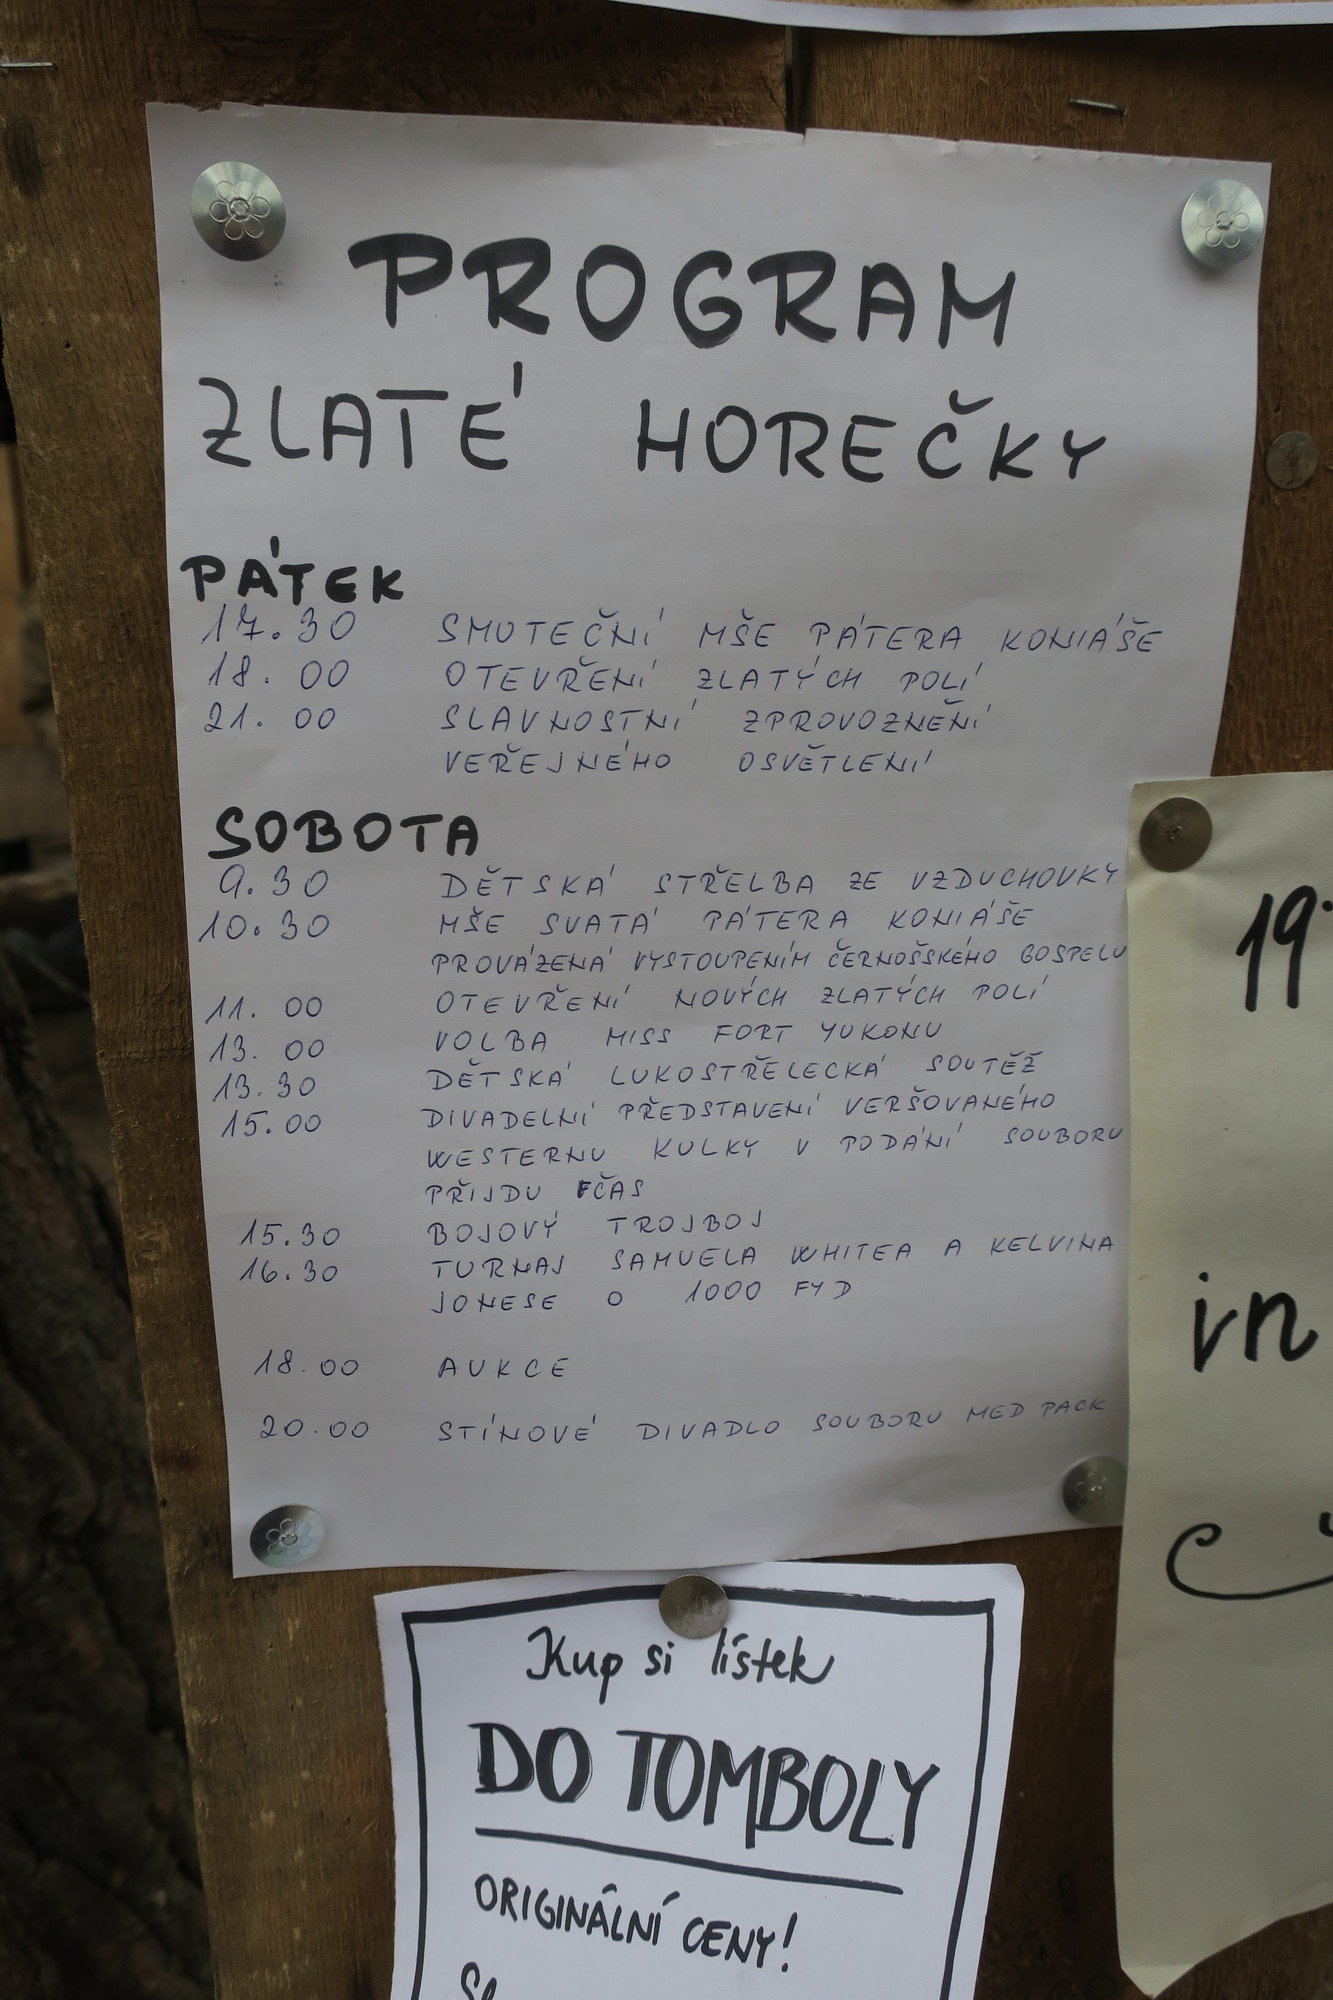 PROGRAM
ZLATÉ HOREČKY
PÁTEK
17.30 SMUTEČNÍ MŠE PÁTERA KONIÁŠE
18.00 OTEVŘENÍ ZLATÝCH POLÍ
21.00 SLAVNOSTNÍ ZPROVOZNĚNÍ
VEŘEJNÉHO OSVĚTLENÍ
SOBOTA
9.30 DĚTSKÁ STŘELBA ZE VZDUCHOVKY
10.30 MŠE SVATÁ PÁTERA KONIÁŠE
PROVÁZENÁ VYSTOUPENÍM ČERNOŠSKÉHO GOSPELU
11.00 OTEVŘENÍ NOVÝCH ZLATÝCH POLÍ
13.00 VOLBA MISS FORT YUKONU
13.30 DĚTSKÁ LUKOSTŘELECKÁ SOUTĚŽ
15.00 DIVADELNÍ PŘEDSTAVENÍ VERŠOVANÉHO
WESTERNU KULKY V PODÁNÍ SOUBORU
PŘIJDU FČAS
15.30 BOJOVÝ TROJBOJ
16.30 TURNAJ SAMUELA WHITEA A KELVINA
JONESE O 1000 FYD
18.00 AUKCE
20.00 STÍNOVÉ DIVADLO SOUBORU MED PACK
19.
in
Kup si lístek
DO TOMBOLY
ORIGINÁLNÍ CENY!